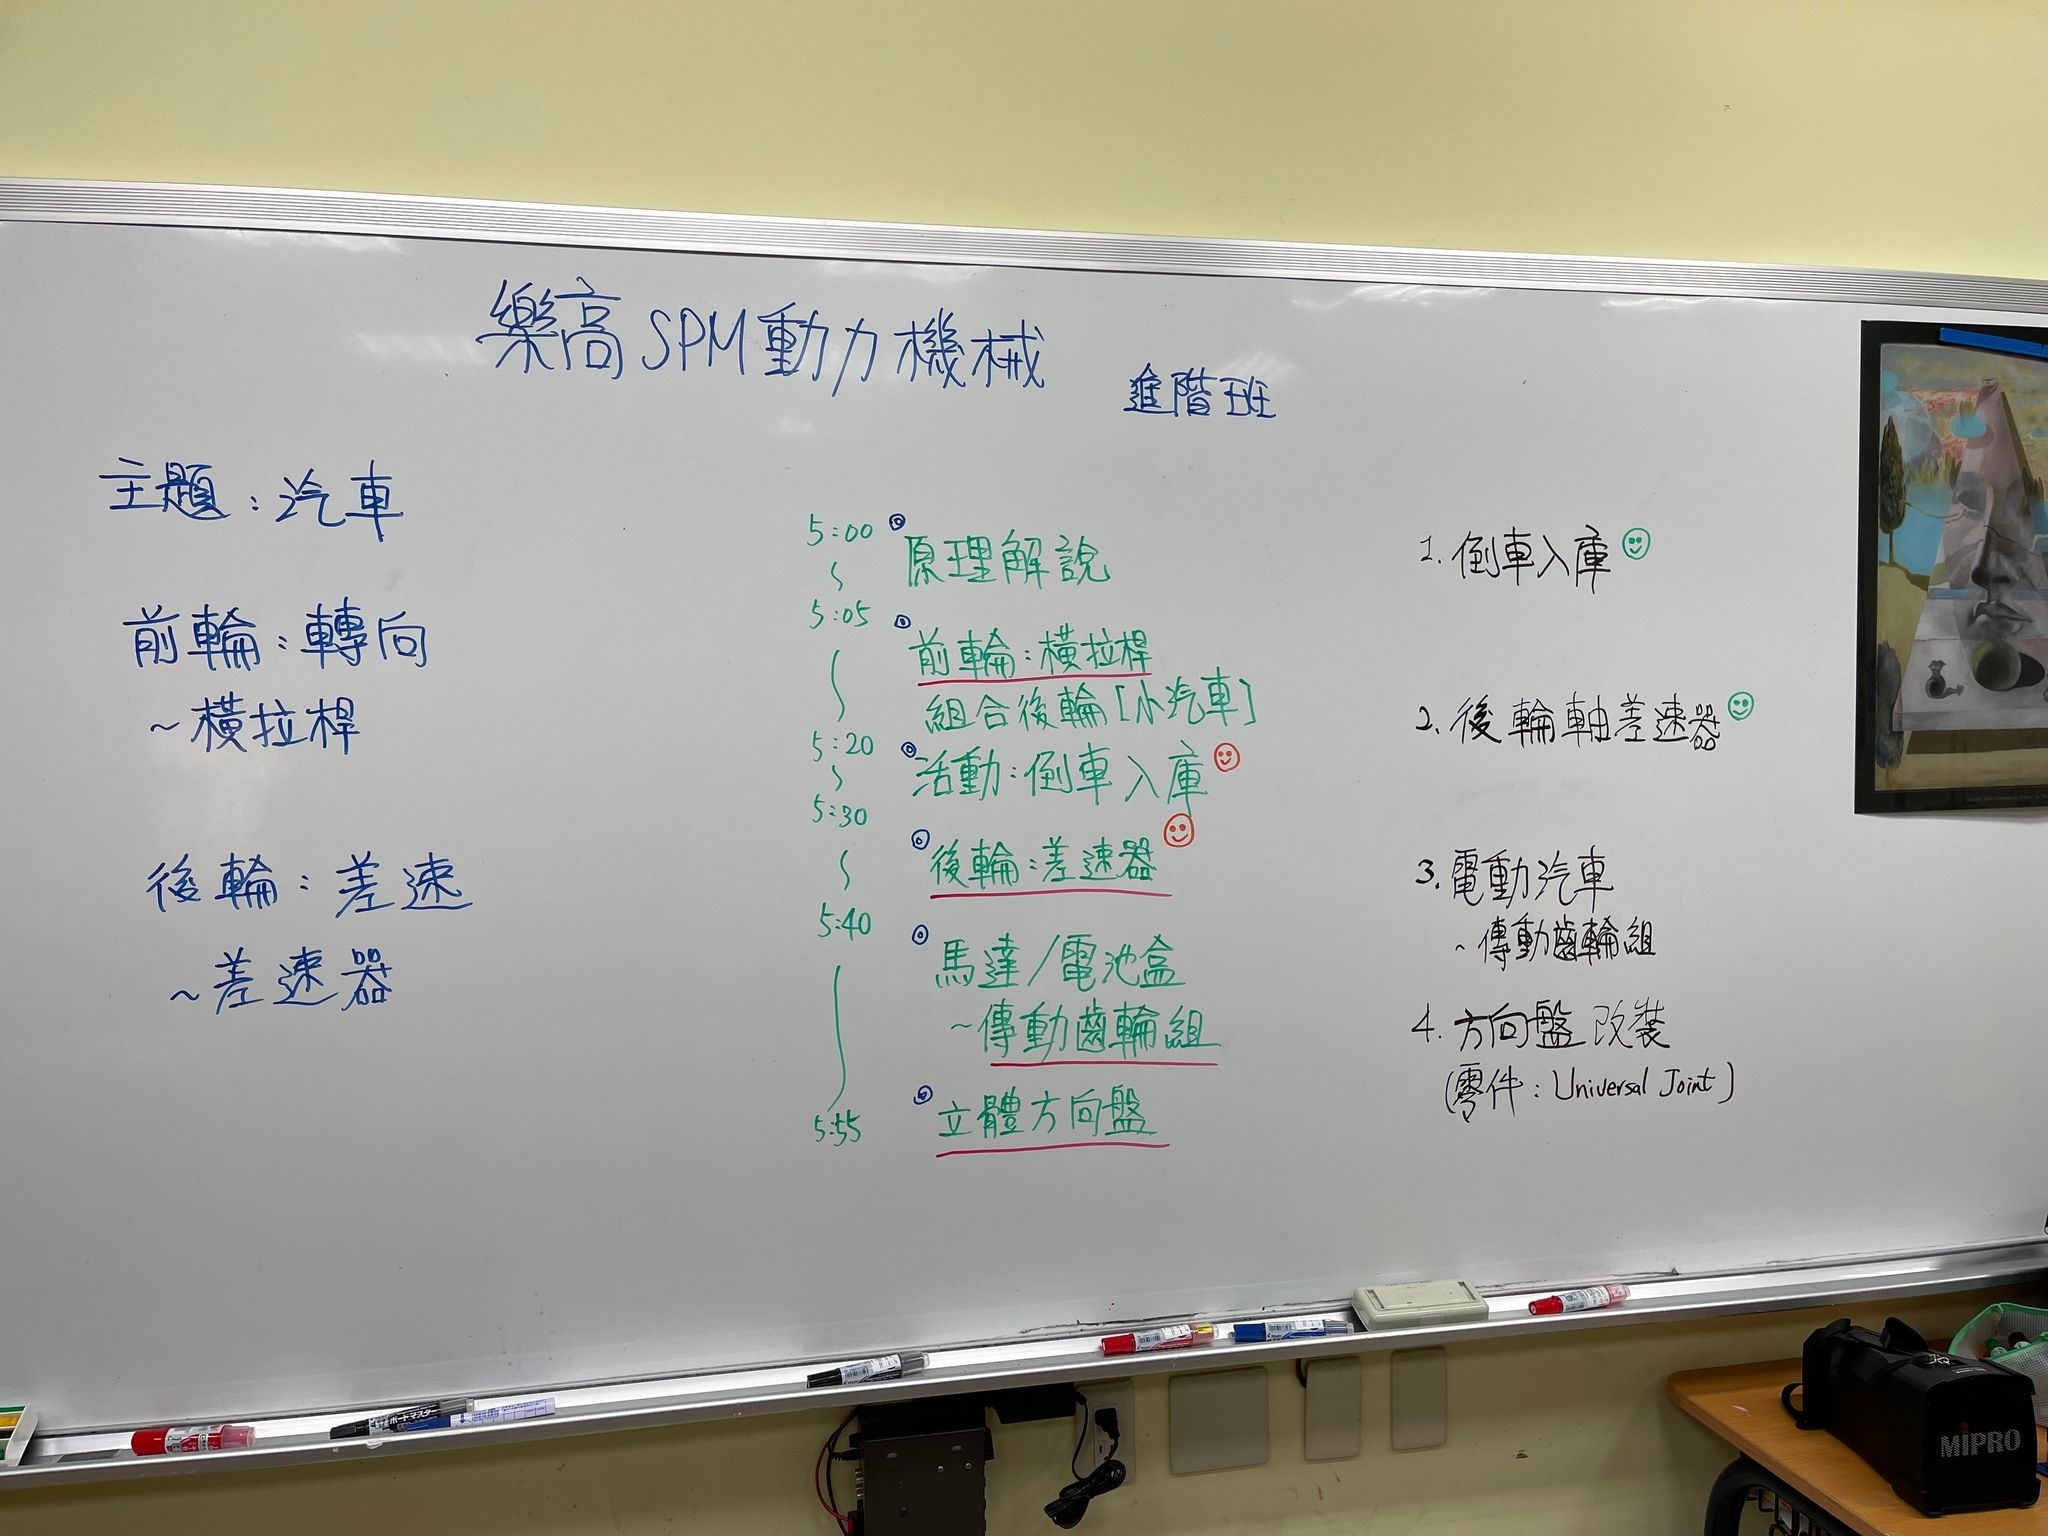 樂高SPM動力機械
進階班
主題：汽車
前輪：轉向
~橫拉桿
後輪：差速
~差速器
5:00
原理解說
5:05
前輪：橫拉桿
組合後輪[小汽車]
5:20
活動：倒車入庫
5:30
後輪：差速器
5:40
馬達/電池盒
~傳動齒輪組
5:55
立體方向盤
1. 倒車入庫
2. 後輪軸差速器
3. 電動汽車
~傳動齒輪組
4. 方向盤改裝
(零件：Universal Joint)
ボードマスター
MIPRO